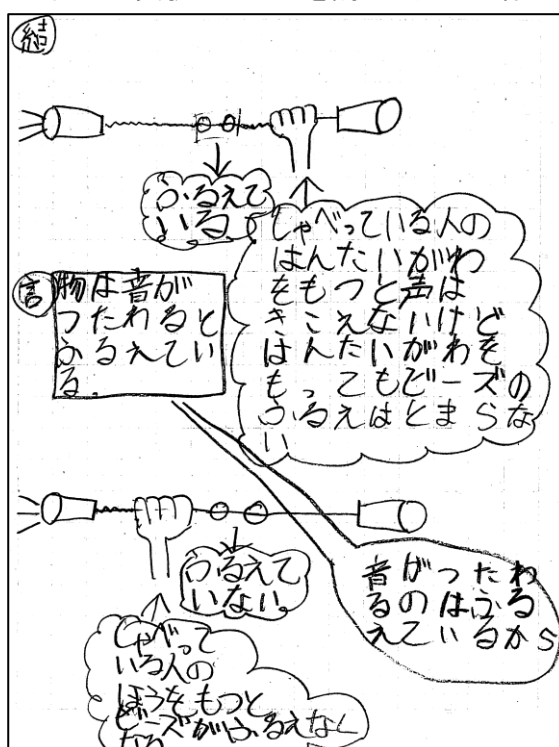 結
ふるえて
いる
しゃべっている人の
はんたいがわ
をもつと声は
きこえないけど
はんたいがわを
もってもビーズの
ふるえはとまらな
い
言
物は音が
つたわると
ふるえてい
る。
ふるえて
いない。
音がつたわ
るのはふる
えているから
しゃべって
いる人の
ほうをもつと
ビーズがふるえなく
なる